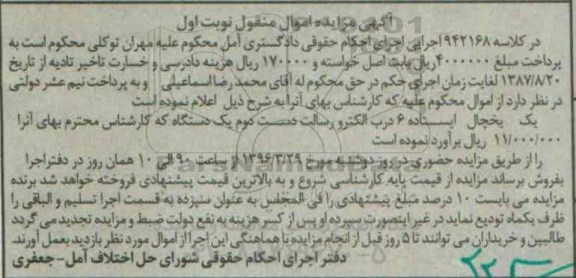 آگهی مزایده اموال منقول نوبت اول
در کلاسه ۹۴۲۱۶۸ اجرایی اجرای احکام حقوقی دادگستری آمل محکوم علیه مهران توکلی محکوم است به
پرداخت مبلغ ۴۰۰۰۰۰۰ ریال بابت اصل خواسته و ۱۷۰۰۰۰ ریال هزینه دادرسی و خسارت تاخیر تادیه از تاریخ
۱۳۸۷/۸/۲۰ لغایت زمان اجرای حکم در حق محکوم له آقای محمد رضا اسماعیلی و به پرداخت نیم عشر دولتی
در نظر دارد از اموال محکوم علیه که کارشناس بهای آنرا به شرح ذیل اعلام نموده است
یک یخچال ایستاده ۶ درب الکترو رسالت دست دوم یک دستگاه که کارشناس محترم بهای آنرا
۱۱/۰۰۰/۰۰۰ ریال برآورد نموده است
را از طریق مزایده حضوری در روز دوشنبه مورخ ۱۳۹۶/۳/۲۹ از ساعت ۹ الی ۱۰ همان روز در دفتر اجرا
بفروش برساند مزایده از قیمت پایه کارشناسی شروع و به بالاترین قیمت پیشنهادی فروخته خواهد شد برنده
مزایده می بایست ۱۰ درصد مبلغ پیشنهادی را فی المجلس به عنوان سپرده به قسمت اجرا تسلیم و الباقی را
ظرف یکماه تودیع نماید در غیر اینصورت سپرده او پس از کسر هزینه به نفع دولت ضبط و مزایده تجدید می گردد
طالبین و خریداران می توانند تا ۵ روز قبل از انجام مزایده با هماهنگی این اجرا از اموال مورد نظر بازدید بعمل آورند.
دفتر اجرای احکام حقوقی شورای حل اختلاف آمل - جعفری